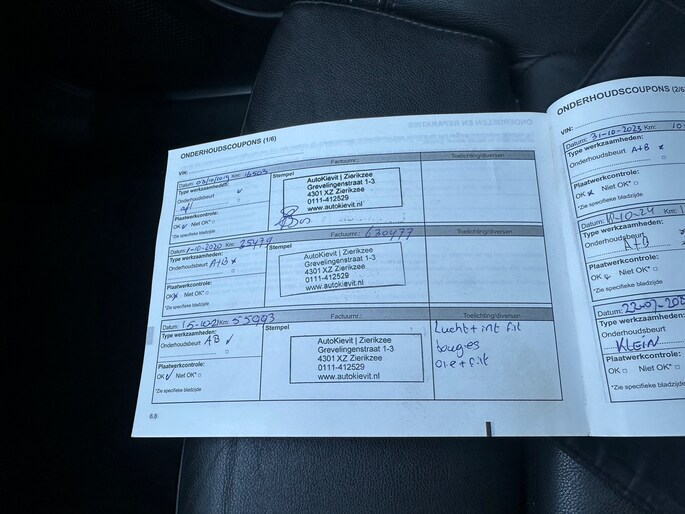 ONDERHOUDSCOUPONS (1/6)
VIN:
Datum: Km: 16503 Factuurnr.: Toelichting/diversen
Type werkzaamheden:
Onderhoudsbeurt
Plaatwerkcontrole:
OK Niet OK*
*Zie specifieke bladzijde
Stempel
AutoKievit | Zierikzee
Grevelingenstraat 1-3
4301 XZ Zierikzee
0111-412529
www.autokievit.nl
Datum: -10-2020 Km: 25479 Factuurnr.: 630477 Toelichting/diversen
Type werkzaamheden:
Onderhoudsbeurt A+B
Plaatwerkcontrole:
OK Niet OK*
*Zie specifieke bladzijde
Stempel
AutoKievit | Zierikzee
Grevelingenstraat 1-3
4301 XZ Zierikzee
0111-412529
www.autokievit.nl
Datum: Km: 55993 Factuurnr.: Toelichting/diversen
Type werkzaamheden:
Onderhoudsbeurt AB
Plaatwerkcontrole:
OK Niet OK*
*Zie specifieke bladzijde
Stempel
AutoKievit | Zierikzee
Grevelingenstraat 1-3
4301 XZ Zierikzee
0111-412529
www.autokievit.nl
Lucht + int filt
bougies
olie + filt
6.8
ONDERHOUDSCOUPONS (2/6
VIN:
Datum: 31-10-2023 Km: 10
Type werkzaamheden:
Onderhoudsbeurt A+B
Plaatwerkcontrole:
OK Niet OK*
*Zie specifieke bladzijde
-10-24
Type werkzaamheden:
Onderhoudsbeurt
A+B
Plaatwerkcontrole:
OK Niet OK*
*Zie specifieke bladzijde
Datum:
Type werkzaamheden:
Onderhoudsbeurt
KLEIN
Plaatwerkcontrole:
OK Niet OK*
*Zie specifieke bladzijde